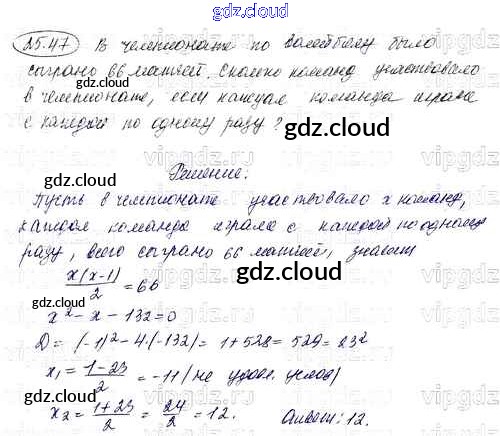 gdz.cloud
25.47 В чемпионате по волейболу было
сыграно 66 матчей. Сколько команд участвовало
в чемпионате, если каждая команда играла
с каждой по одному разу?
gdz.cloud
Решение:
gdz.cloud
Пусть в чемпионате участвовало x команд,
каждая команда играла с каждой по одному
разу, всего сыграно 66 матчей, значит
gdz.cloud
x(x-1)/2 = 66
gdz.cloud
x² - x - 132 = 0
D = (-1)² - 4·(-132) = 1 + 528 = 529 = 23²
x₁ = (1-23)/2 = -11 (не удовл. услов)
gdz.cloud
x₂ = (1+23)/2 = 24/2 = 12. Ответ: 12.
gdz.cloud